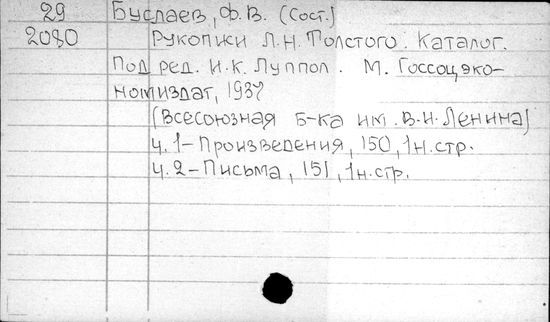 29 Буслаев, Ф.В. (Сост.)
2080 Рукописи Л.Н. Толстого. Каталог.
Под ред. И.К. Луппол. М. Госсоцэко-
номиздат, 1937
(Всесоюзная б-ка им. В.И. Ленина)
ч. 1 - Произведения, 150, 1 н. стр.
ч. 2 - Письма, 151, 1 н. стр.